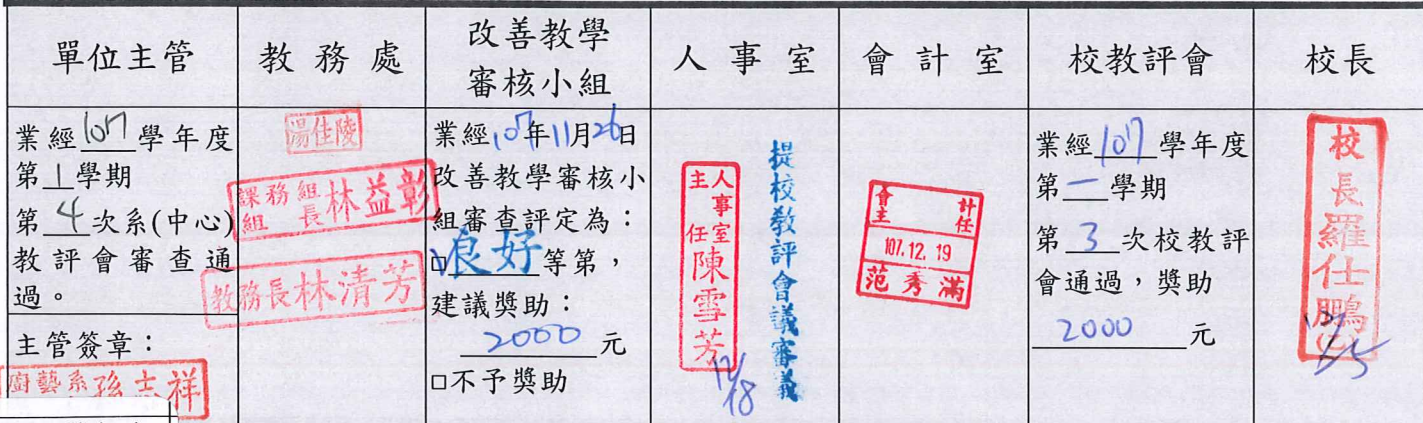 單位主管
教務處
改善教學
審核小組
人事室
會計室
校教評會
校長
業經107學年度
第1學期
第4次系(中心)
教評會審查通
過。
主管簽章：
廚藝系孫志祥
湯佳陵
課務組
組長林益彰
教務長林清芳
業經107年11月26日
改善教學審核小
組審查評定為：
□良好等第，
建議獎助：
2000元
□不予獎助
人事室
主任陳雪芳
12/18
提校教評會議審議
會計
主任
107.12.19
范秀滿
業經107學年度
第一學期
第3次校教評
會通過，獎助
2000元
校長羅仕鵬